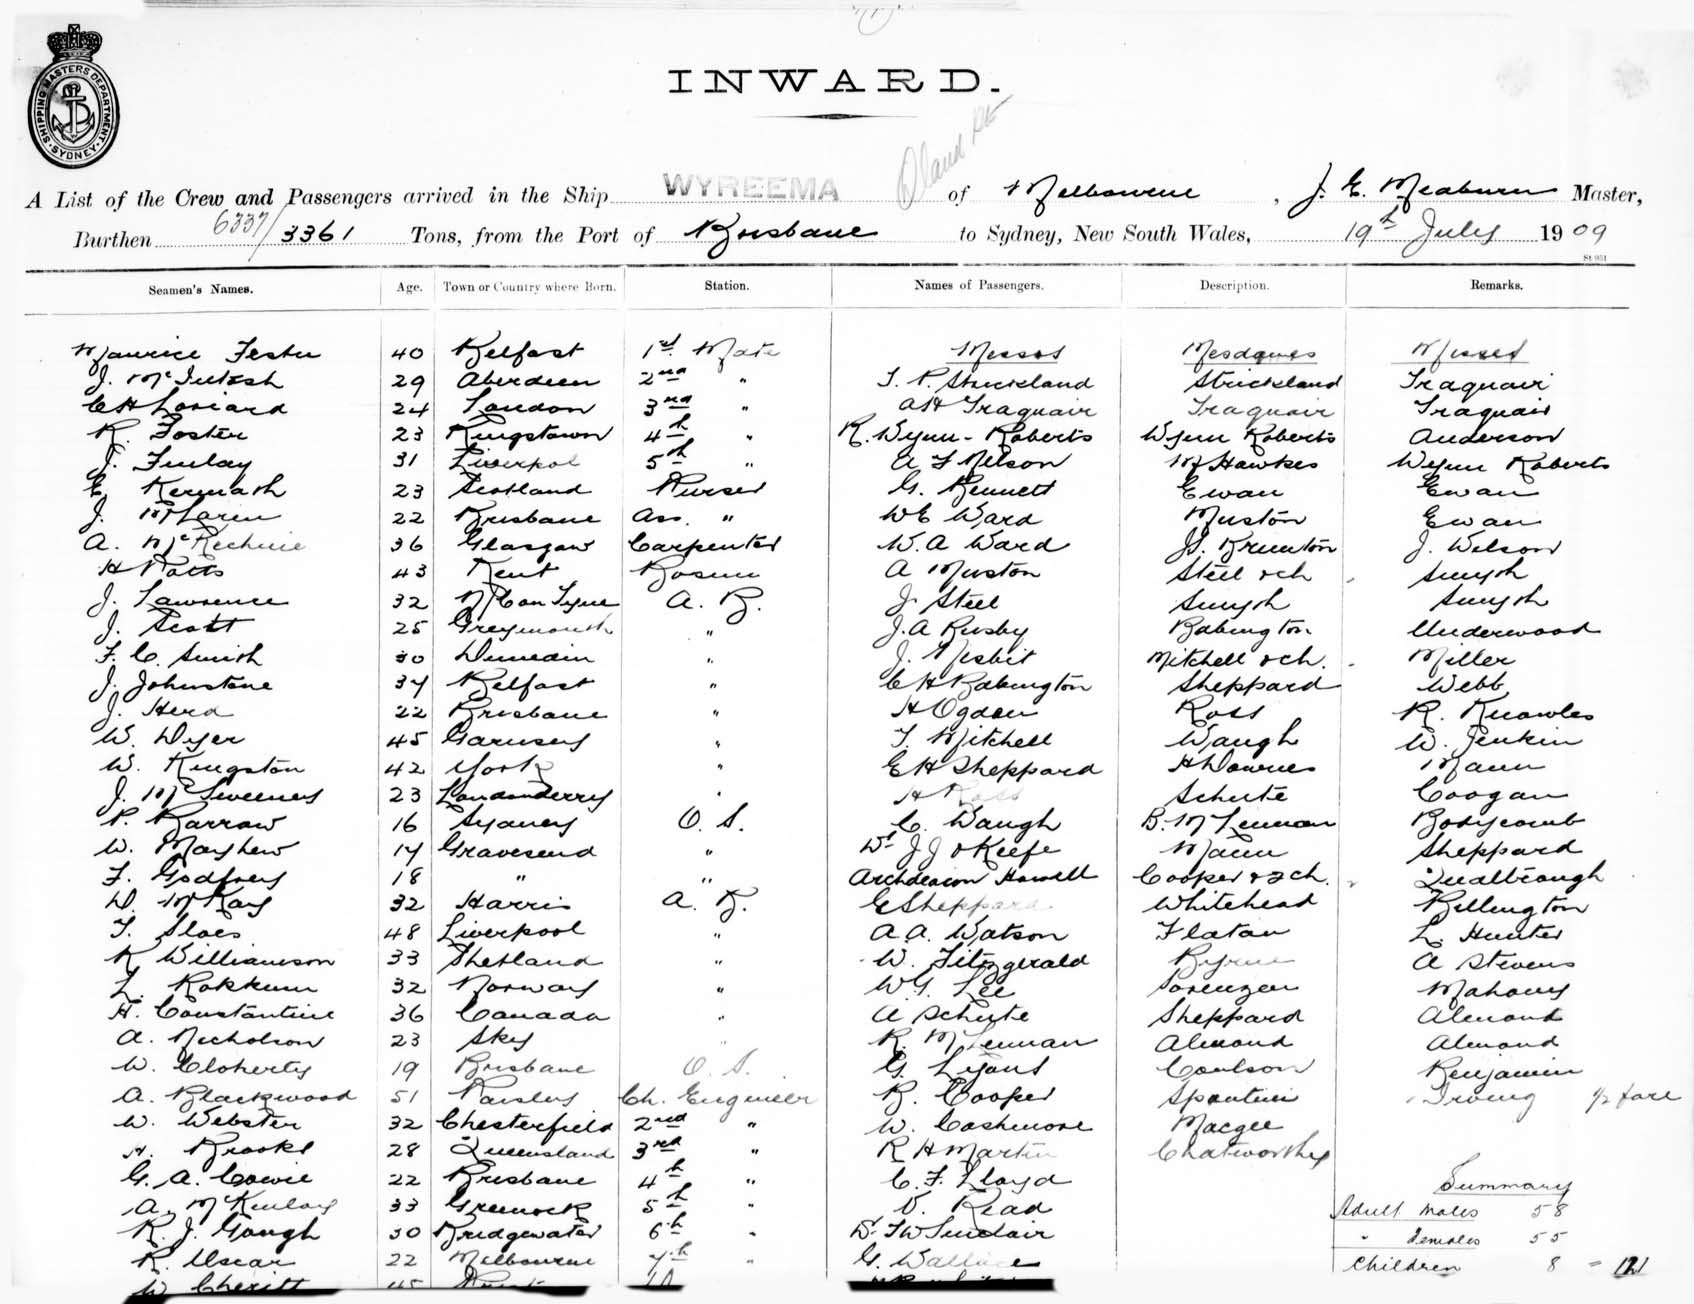 INWARD.
SHIPPING MASTERS DEPARTMENT
SYDNEY
A List of the Crew and Passengers arrived in the Ship WYREEMA of Melbourne, J. E. Meaburn Master,
Burthen 6337/3361 Tons, from the Port of Brisbane to Sydney, New South Wales, 19th July 1909
St 951
Seamen's Names. Age. Town or Country where Born. Station. Names of Passengers. Description. Remarks.
Maurice Fester 40 Belfast 1st Mate Messrs Mesdames Misses
J. McIntosh 29 Aberdeen 2nd " T. P. Strickland Strickland Traquair
C H Loriard 24 London 3rd " A H Traquair Traquair Traquair
R. Foster 23 Kingstown 4th " R. Wynn-Roberts Wynn Roberts Anderson
J. Finlay 31 Liverpol 5th " A F Nelson Hawkes Wynn Roberts
E. 23 Scotland Purser G. Bennett Ewan Ewan
J. McLaren 22 Brisbane Ass. " W E Ward Muston Ewan
A. McKechnie 36 Glasgow Carpenter W. A Ward Brunton J. Wilson
H Potts 43 Kent Bosun A Muston Steel & ch Smyth
J. Lawrence 32 N'C on Tyne A. B. J. Steel Smyth Smyth
J. Scott 25 Greymouth " J. A Busby Babington Underwood
F. C. Smith 30 Dunedin " J. Nisbit Mitchell & ch. Miller
J. Johnstone 34 Belfast " C H Babington Sheppard Webb
J. Herd 22 Brisbane " H Ogden Ross R. Knowles
W. Dyer 45 Garnsey " T. Mitchell Waugh W. Jenkin
W. Kingston 42 York " E H Sheppard H Downes Mann
J. McSweeney 23 Londonderry " H Ross Schute Coogan
P. Barrow 16 Sydney O. S. C. Waugh B. McLennan Bodycomb
W. Mayhew 17 Gravesend " Dr J J O'Keefe Mann Sheppard
F. Godfrey 18 " " Archdeacon Howell Cooper & 2 ch. Qualtrough
D. McKay 32 Harris A. B. E Sheppard Whitehead Bellington
T. Sloes 48 Liverpool " A. A. Watson Flatau L. Hunter
R Williamson 33 Shetland " W. Fitzgerald Byrne A Stevens
L. Rokkum 32 Norway " W G. Lee Sorenzen Mahony
H. Constantine 36 Canada " A Schute Sheppard Almond
A. Nicholson 23 Sky " R. McLennan Almond Almond
W. Cloherty 19 Brisbane O. S. G. Lyons Coulson Benjamin
A. Blackwood 51 Paisley Ch. Engineer B. Cooper Spontini Irving 1/2 fare
W. Webster 32 Chesterfield 2nd " W. Cashmore Macgee
H. Brooks 28 Queensland 3rd " R H Martin Chatworthy
G. A. Cowie 22 Brisbane 4th " C. F. Lloyd Summary
A. McKinlay 33 Greenock 5th " V. Read Adult Males 58
R. J. Gough 30 Bridgewater 6th " Dr. F W Sinclair " Females 55
R. Uscar 22 Melbourne 7th " G. Wallace Children 8 = 121
W Cheritt 45